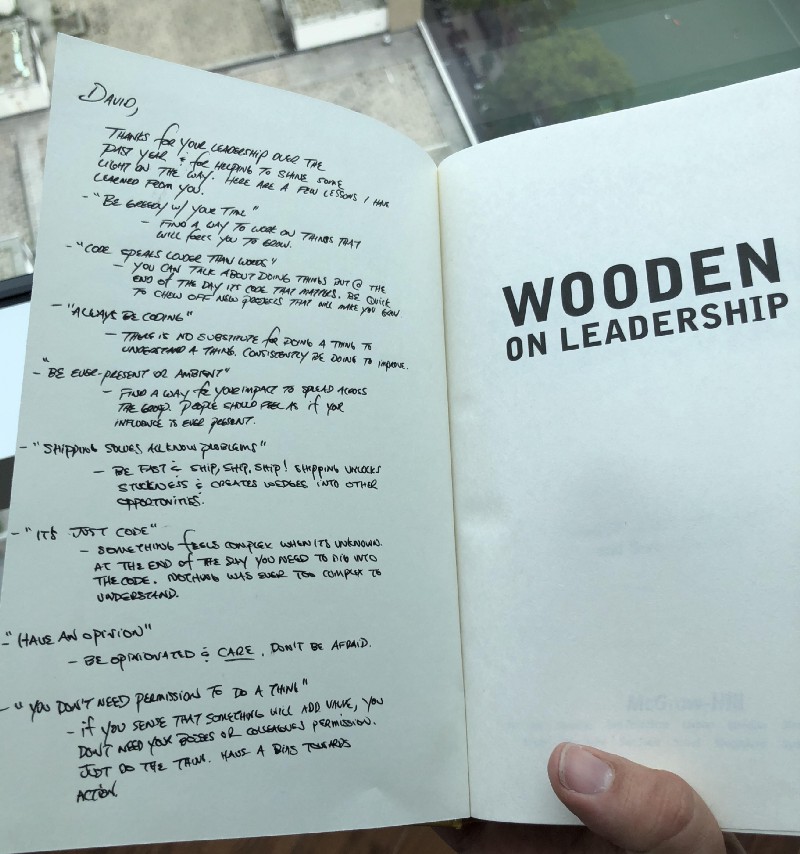 DAVID,
THANKS for YOUR LEADERSHIP OVER THE
PAST YEAR & for HELPING TO SHINE SOME
LIGHT ON THE WAY. HERE ARE A FEW LESSONS I HAVE
LEARNED FROM YOU.
- "BE GREEDY W/ YOUR TIME"
- FIND A WAY TO WORK ON THINGS THAT
WILL FORCE YOU TO GROW.
- "CODE SPEAKS LOUDER THAN WORDS"
- YOU CAN TALK ABOUT DOING THINGS BUT @ THE
END OF THE DAY ITS CODE THAT MATTERS. BE QUICK
TO CHEW OFF NEW PROJECTS THAT WILL MAKE YOU GROW
- "ALWAYS BE CODING"
- THERE IS NO SUBSTITUTE for DOING A THING TO
UNDERSTAND A THING. CONSISTENTLY BE DOING TO IMPROVE.
- "BE EVER-PRESENT OR AMBIENT"
- FIND A WAY for YOUR IMPACT TO SPREAD ACROSS
THE GROUP. PEOPLE SHOULD FEEL AS if YOUR
INFLUENCE IS EVER PRESENT.
- "SHIPPING SOLVES ALL KNOW PROBLEMS"
- BE FAST & SHIP, SHIP, SHIP! SHIPPING UNLOCKS
STUCKNESS & CREATES WEDGES INTO OTHER
OPPORTUNITIES.
- "IT'S JUST CODE"
- SOMETHING FEELS COMPLEX WHEN ITS UNKNOWN.
AT THE END OF THE DAY YOU NEED TO DIG INTO
THE CODE. NOTHING WAS EVER TOO COMPLEX TO
UNDERSTAND.
- "HAVE AN OPINION"
- BE OPINIONATED & CARE. DON'T BE AFRAID.
- "YOU DON'T NEED PERMISSION TO DO A THING"
- if YOU SENSE THAT SOMETHING WILL ADD VALUE, YOU
DON'T NEED YOUR BOSSES OR COLLEAGUES PERMISSION.
JUST DO THE THING. HAVE A BIAS TOWARDS
ACTION.
WOODEN
ON LEADERSHIP
McGraw-Hill